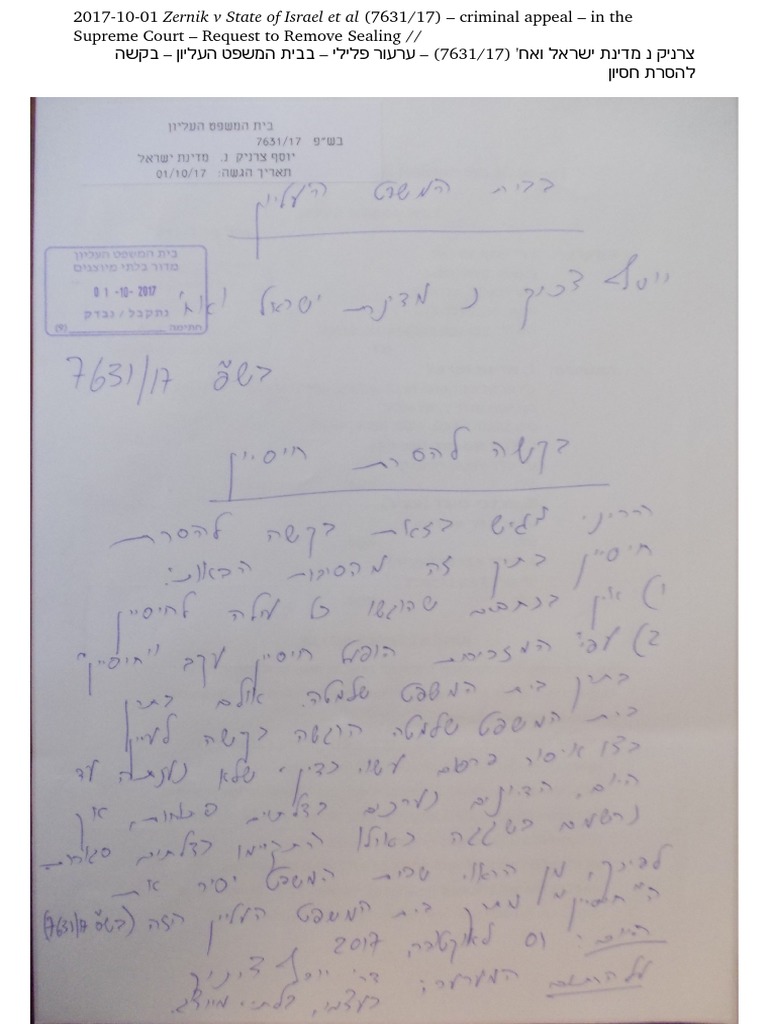 2017-10-01 Zernik v State of Israel et al (7631/17) – criminal appeal – in the
Supreme Court – Request to Remove Sealing //
צרניק נ מדינת ישראל ואח' (7631/17) – ערעור פלילי – בבית המשפט העליון – בקשה
להסרת חסיון
בית המשפט העליון
בש"פ 7631/17
יוסף צרניק נ. מדינת ישראל
תאריך הגשה: 01/10/17
בבית המשפט העליון
בית המשפט העליון
מדור בלתי מיוצגים
01-10-2017
נתקבל / נבדק
חתימה (9)
יוסף צרניק נ מדינת ישראל ואח'
בש"פ 7631/17
בקשה להסרת חיסיון
הריני מגיש בזאת בקשה להסרת
חיסיון בתיק זה מהסיבות הבאות:
1) אין בכתבים שהוגשו כל עילה לחיסיון
2) עפ"י המזכירות הוטל חיסיון עקב "חיסיון"
בתיק בית המשפט שלמטה. אולם בתיק
בית המשפט שלמטה הוגשה בקשה לעיין
בצו איסור פרסום עשוי כדין, שלא נענתה עד
היום. הדיונים נערכים בדלתיים פתוחות, אך
נרשמים בשגגה כאילו התקיימו בדלתיים סגורות
לפיכך, מן הראוי שבית המשפט יסיר את
ה"חיסיון" מתיק בית המשפט העליון הזה (בש"פ 7631/17)
היום: 01 לאוקטובר, 2017
על החתום המערער: ד"ר יוסף צרניק
בעצמו, בלתי מיוצג.